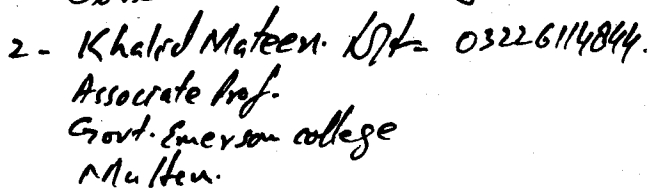 2- Khalid Mateen. 03226114844.
Associate Prof.
Govt. Emerson college
Multan.